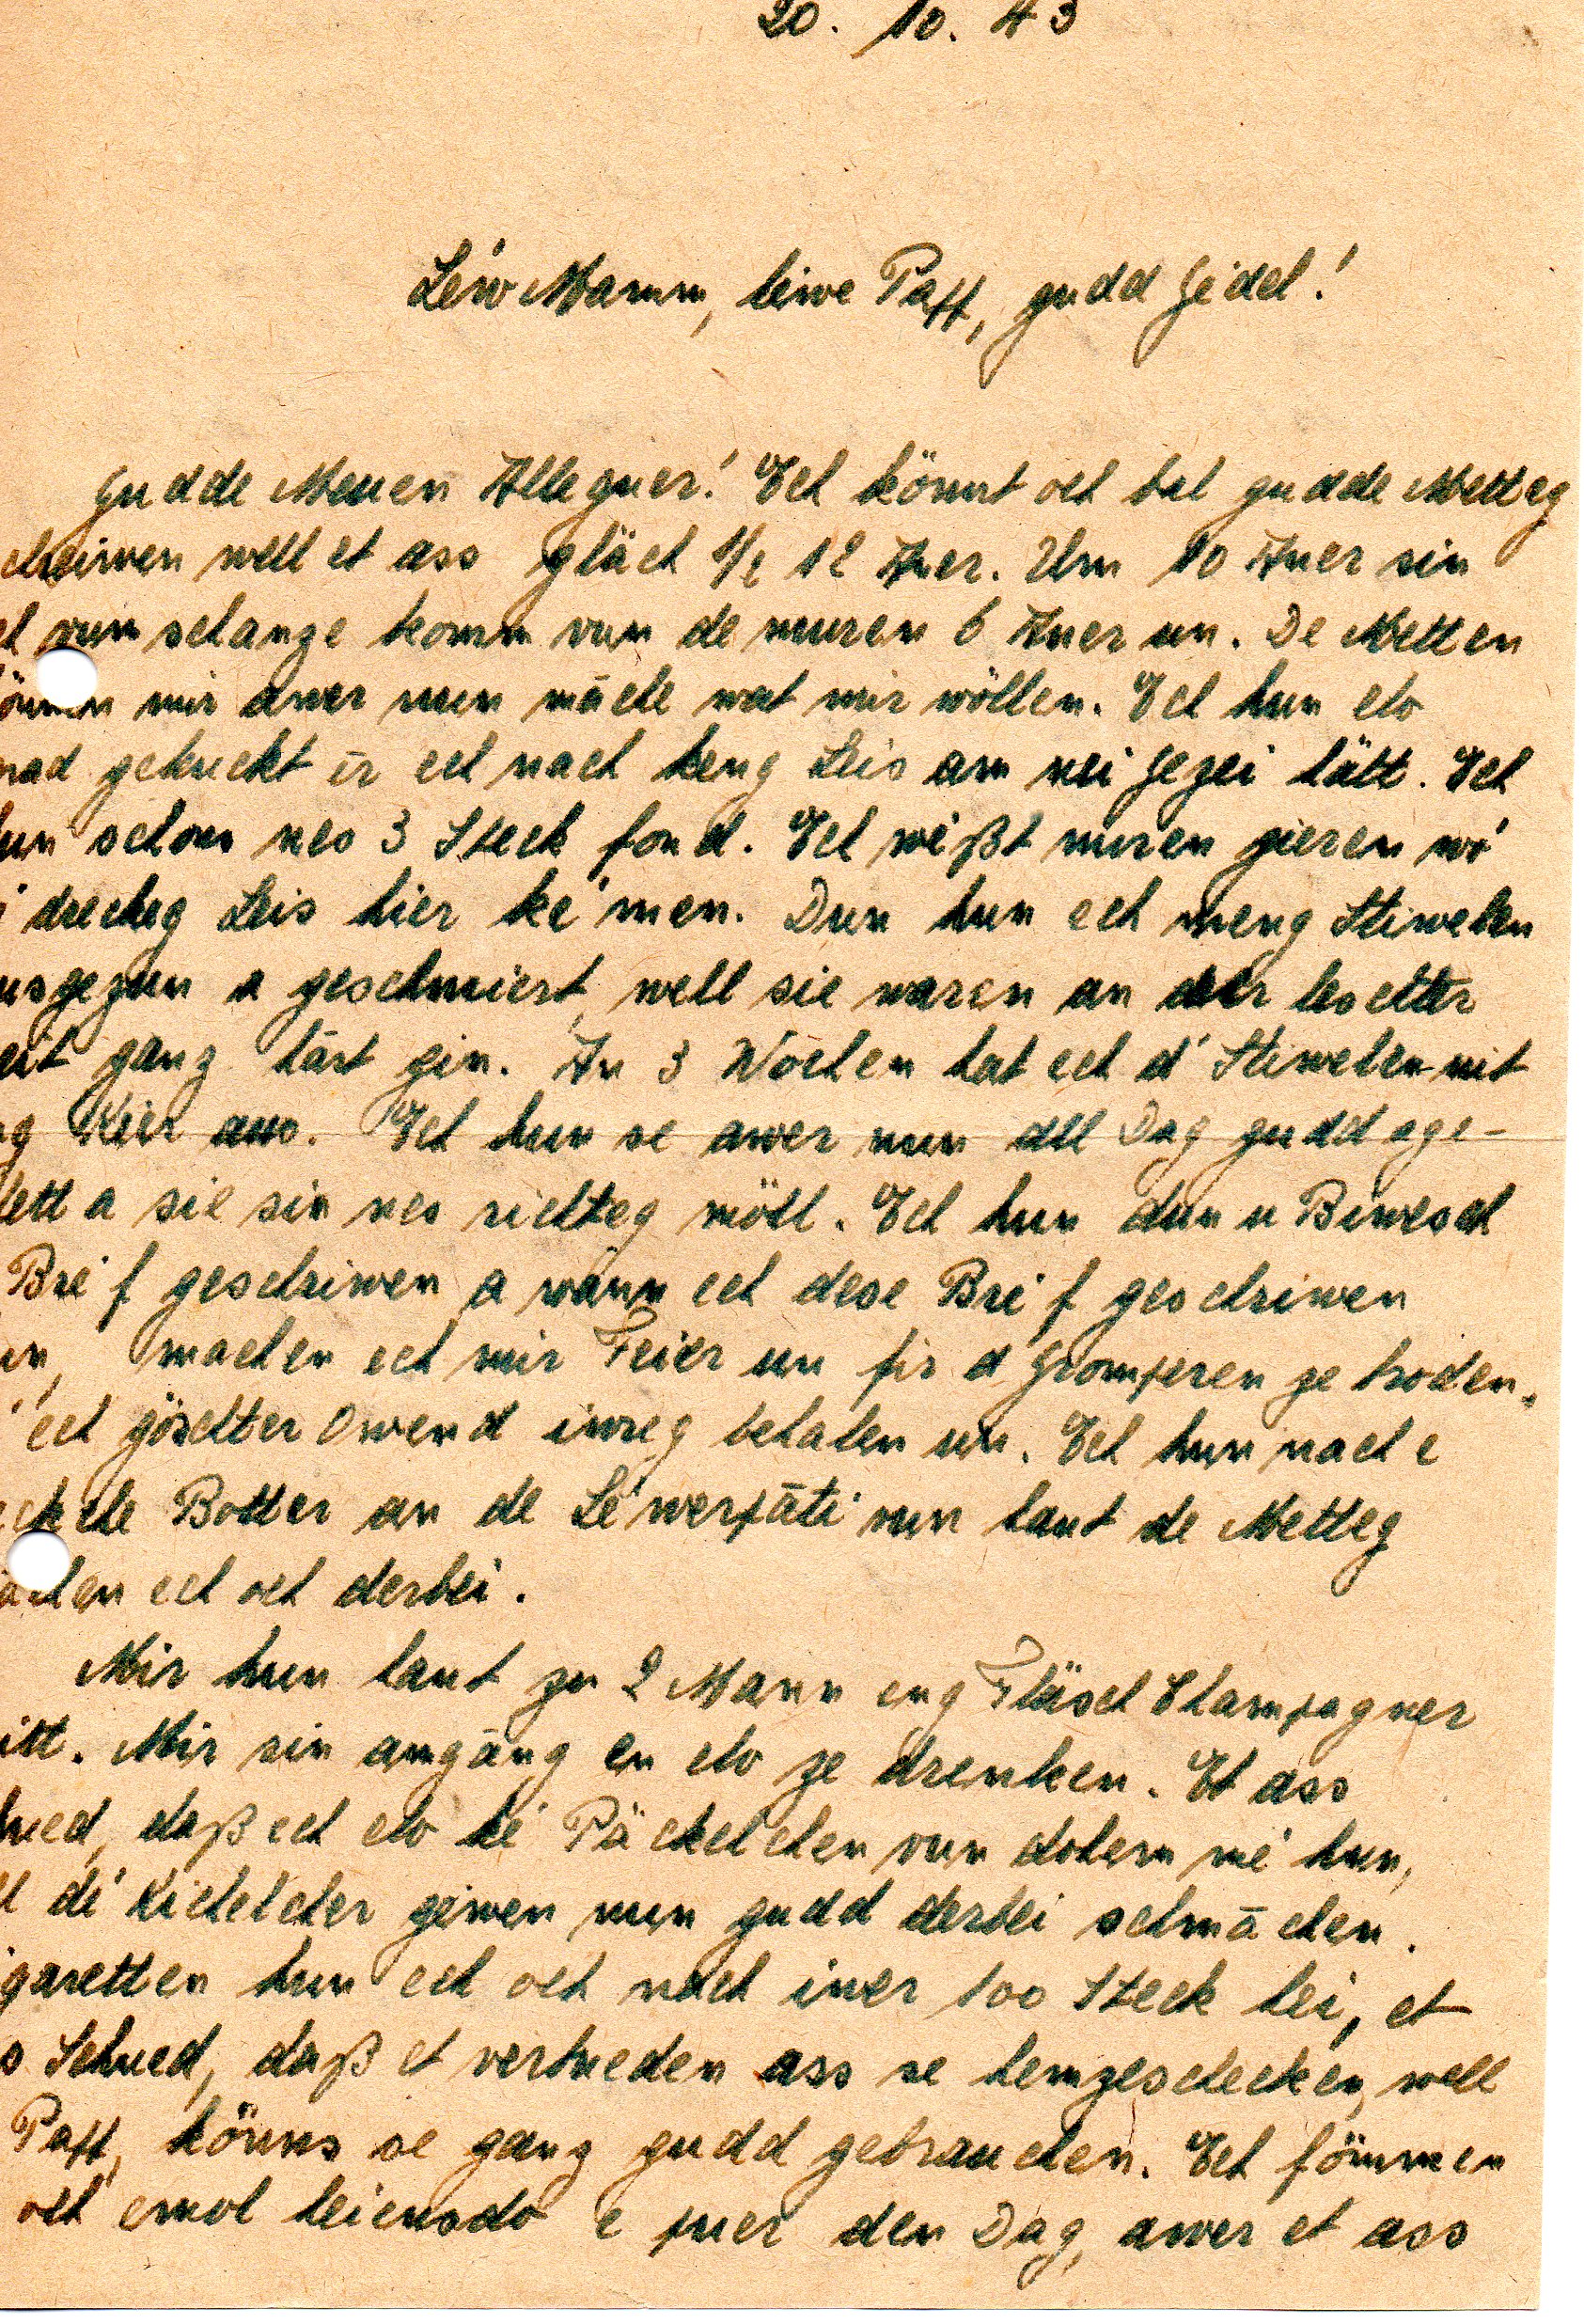 20. 10. 43
Léiw Mamm, léiwe Papp, gudd Gidel!
Gudde Muen Alleguer! Ech könnt och bal gudde Metteg
chreiwen well et ass gläch 1/2 12 Auer. Um 10 Auer sin
ch vum schanze komm vun de muren 6 Auer un. De Metten
önnen mir awer nun mäche wat mir wöllen. Ech hun elo
nad gekuckt ir ech nach keng Leis am nei Gezei hätt. Ech
hun schons nes 3 Steck fond. Ech wéßt muren gieren wó
i dreckeg Leis hier kémen. Dun hun ech meng Stiwelen
usgezun a geschmiert, well sie waren an der leschter
eit ganz härt gin. An 3 Wochen hat ech d'Stiwelen nit
ng Kéier aus. Ech hun se awer nun all Dag gudd age-
lett a sie sin nes richteg möll. Ech hun dun u Biwesch
Bréf geschriwen a wänn ech dese Bréf geschriwen
un, machen ech mir Feier un fir d'Gromperen ze broden,
ech göschter Owend iwreg behalen un. Ech hun nach e
ckche Botter an de Léwerpäti vun haut de Metteg
ächen ech och derbei.
Mir hun haut zu 2 Mann eng Fläsch Champagner
itt. Mir sin amgäng en elo ze drenken. Et ass
hued, daß ech elo ké Päckelchen vun dohem mé hun,
ll dé Kichelcher giwen nun gudd derbei schmächen.
garetten hun ech och nach iwer 100 Steck lei, et
s Schued, daß et verbueden ass se hemzeschecken, well
Papp, könns se ganz gudd gebrauchen. Ech fömmen
och emol heiensdo e puer den Dag, awer et ass